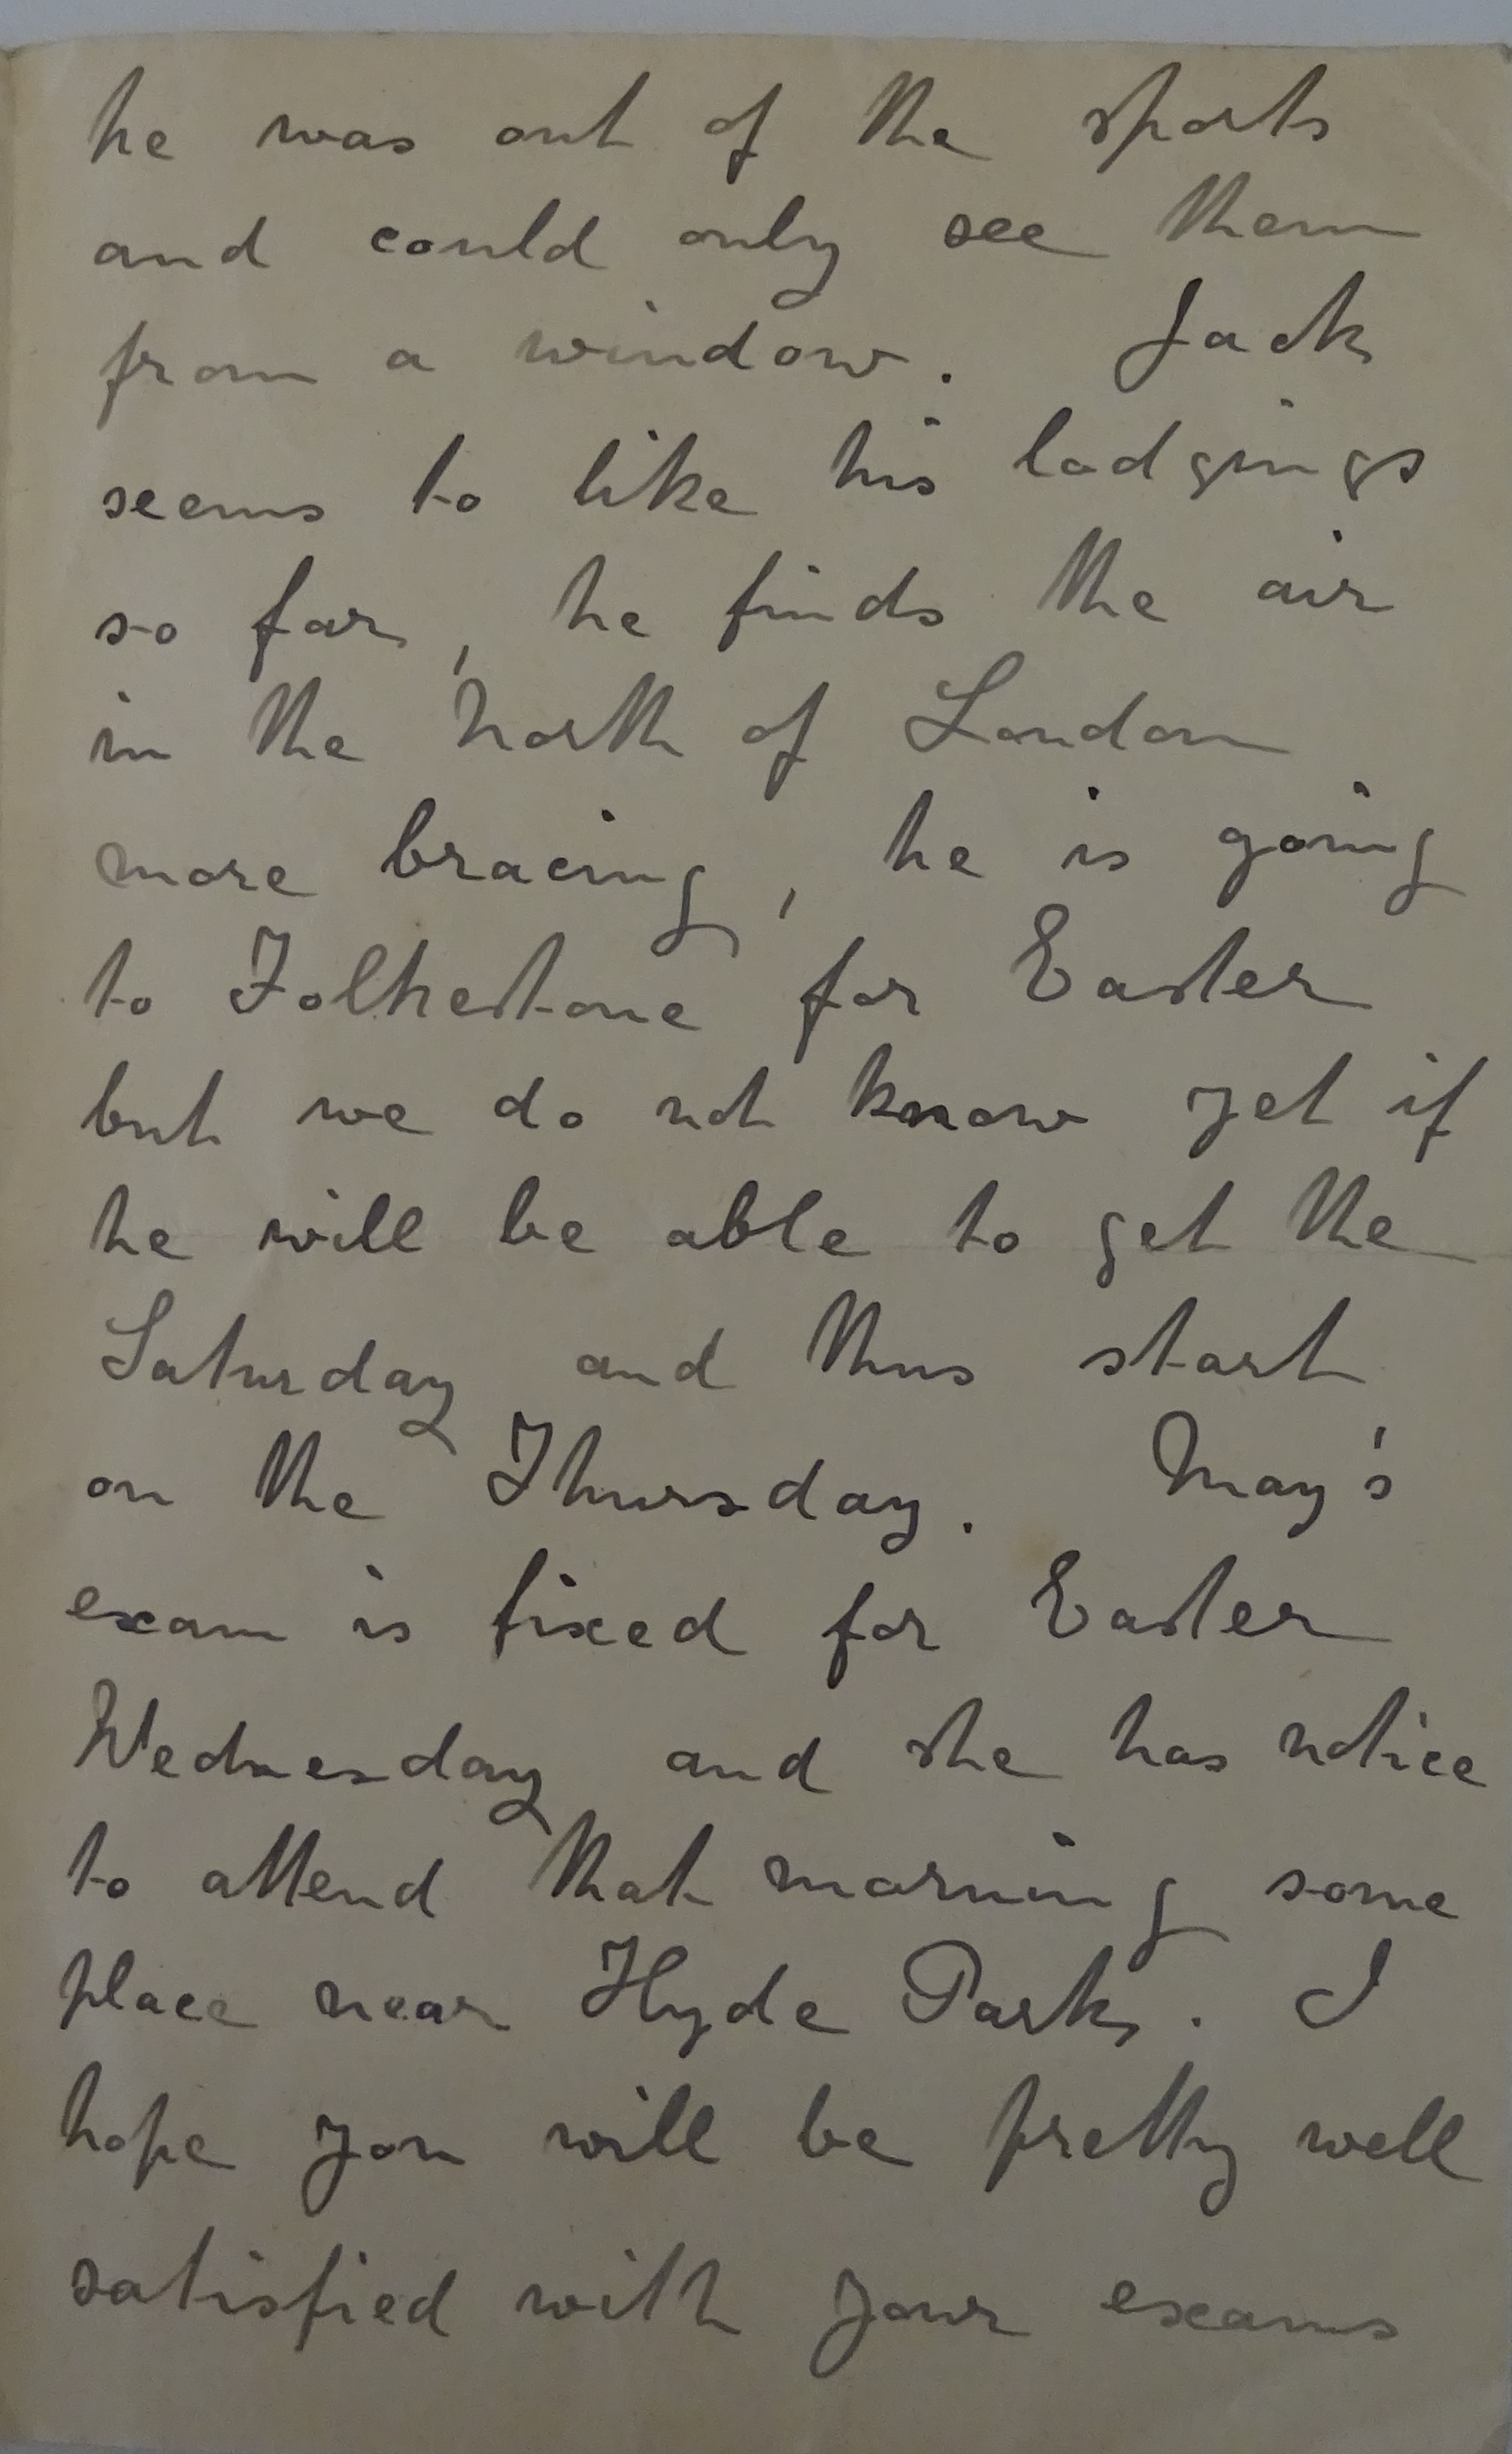 he was out of the sports
and could only see them
from a window. Jack
seems to like his lodgings
so far, he finds the air
in the North of London
more bracing, he is going
to Folkestone for Easter
but we do not know yet if
he will be able to get the
Saturday and thus start
on the Thursday. May's
exam is fixed for Easter
Wednesday and she has notice
to attend that morning some
place near Hyde Park. I
hope you will be pretty well
satisfied with your exams